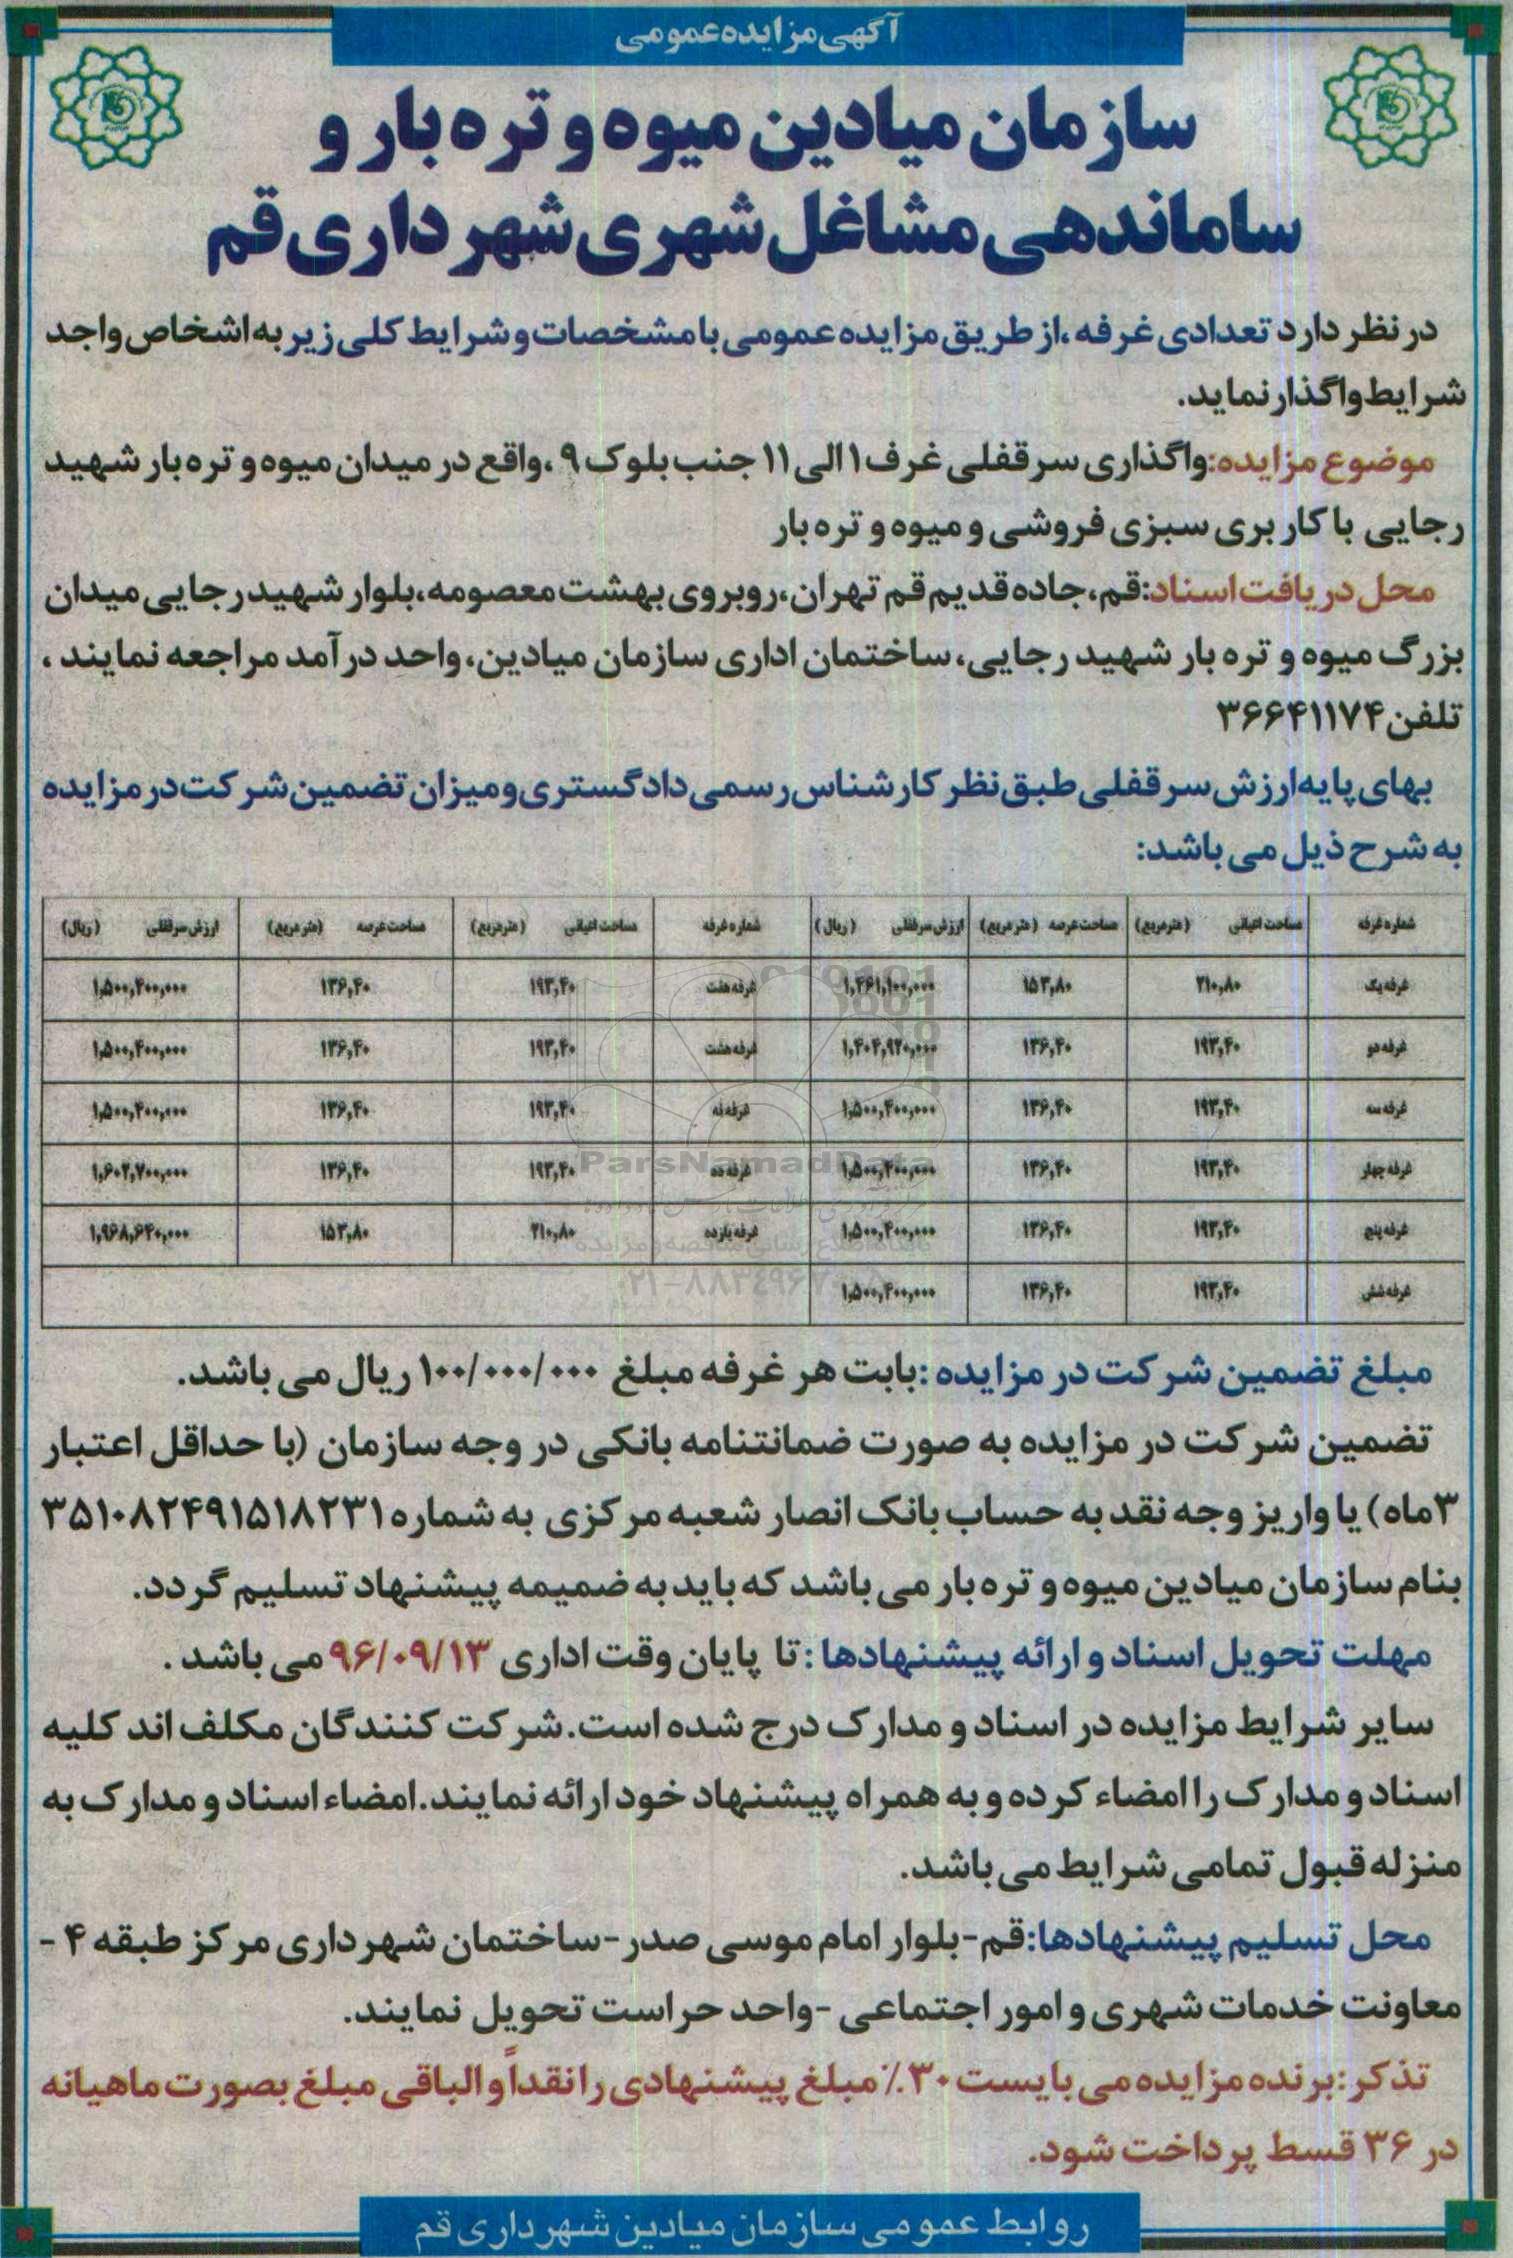 آگهی مزایده عمومی
سازمان میادین میوه و تره بار و
ساماندهی مشاغل شهری شهرداری قم
در نظر دارد تعدادی غرفه ،از طریق مزایده عمومی با مشخصات و شرایط کلی زیر به اشخاص واجد
شرایط واگذار نماید.
موضوع مزایده:واگذاری سرقفلی غرف ۱ الی ۱۱ جنب بلوک ۹ ،واقع در میدان میوه و تره بار شهید
رجایی با کاربری سبزی فروشی و میوه و تره بار
محل دریافت اسناد:قم،جاده قدیم قم تهران،روبروی بهشت معصومه،بلوار شهید رجایی میدان
بزرگ میوه و تره بار شهید رجایی،ساختمان اداری سازمان میادین،واحد درآمد مراجعه نمایند ،
تلفن ۳۶۶۴۱۱۷۴
بهای پایه ارزش سرقفلی طبق نظر کارشناس رسمی دادگستری و میزان تضمین شرکت در مزایده
به شرح ذیل می باشد:
شماره غرفه مساحت اعیانی (مترمربع) مساحت عرصه (متر مربع) ارزش سرقفلی (ریال) شماره غرفه مساحت اعیانی (مترمربع) مساحت عرصه (متر مربع) ارزش سرقفلی (ریال)
غرفه یک ۲۱۰,۸۰ ۱۵۳,۸۰ ۱,۴۶۱,۱۰۰,۰۰۰ غرفه هفت ۱۹۳,۴۰ ۱۳۶,۴۰ ۱,۵۰۰,۴۰۰,۰۰۰
غرفه دو ۱۹۳,۴۰ ۱۳۶,۴۰ ۱,۴۰۴,۹۲۰,۰۰۰ غرفه هشت ۱۹۳,۴۰ ۱۳۶,۴۰ ۱,۵۰۰,۴۰۰,۰۰۰
غرفه سه ۱۹۳,۴۰ ۱۳۶,۴۰ ۱,۵۰۰,۴۰۰,۰۰۰ غرفه نه ۱۹۳,۴۰ ۱۳۶,۴۰ ۱,۵۰۰,۴۰۰,۰۰۰
غرفه چهار ۱۹۳,۴۰ ۱۳۶,۴۰ ۱,۵۰۰,۴۰۰,۰۰۰ غرفه ده ۱۹۳,۴۰ ۱۳۶,۴۰ ۱,۶۰۲,۷۰۰,۰۰۰
غرفه پنج ۱۹۳,۴۰ ۱۳۶,۴۰ ۱,۵۰۰,۴۰۰,۰۰۰ غرفه یازده ۲۱۰,۸۰ ۱۵۳,۸۰ ۱,۹۶۸,۶۴۰,۰۰۰
غرفه شش ۱۹۳,۴۰ ۱۳۶,۴۰ ۱,۵۰۰,۴۰۰,۰۰۰
ParsNamadData
مبلغ تضمین شرکت در مزایده :بابت هر غرفه مبلغ ۱۰۰/۰۰۰/۰۰۰ ریال می باشد.
تضمین شرکت در مزایده به صورت ضمانتنامه بانکی در وجه سازمان (با حداقل اعتبار
۳ماه) یا واریز وجه نقد به حساب بانک انصار شعبه مرکزی به شماره ۳۵۱۰۸۲۴۹۱۵۱۸۲۳۱
بنام سازمان میادین میوه و تره بار می باشد که باید به ضمیمه پیشنهاد تسلیم گردد.
مهلت تحویل اسناد و ارائه پیشنهادها :تا پایان وقت اداری ۹۶/۰۹/۱۳ می باشد .
سایر شرایط مزایده در اسناد و مدارک درج شده است.شرکت کنندگان مکلف اند کلیه
اسناد و مدارک را امضاء کرده و به همراه پیشنهاد خود ارائه نمایند.امضاء اسناد و مدارک به
منزله قبول تمامی شرایط می باشد.
محل تسلیم پیشنهادها:قم-بلوار امام موسی صدر-ساختمان شهرداری مرکز طبقه ۴ -
معاونت خدمات شهری و امور اجتماعی -واحد حراست تحویل نمایند.
تذکر:برنده مزایده می بایست ۳۰٪ مبلغ پیشنهادی را نقداً و الباقی مبلغ بصورت ماهیانه
در ۳۶ قسط پرداخت شود.
روابط عمومی سازمان میادین شهرداری قم